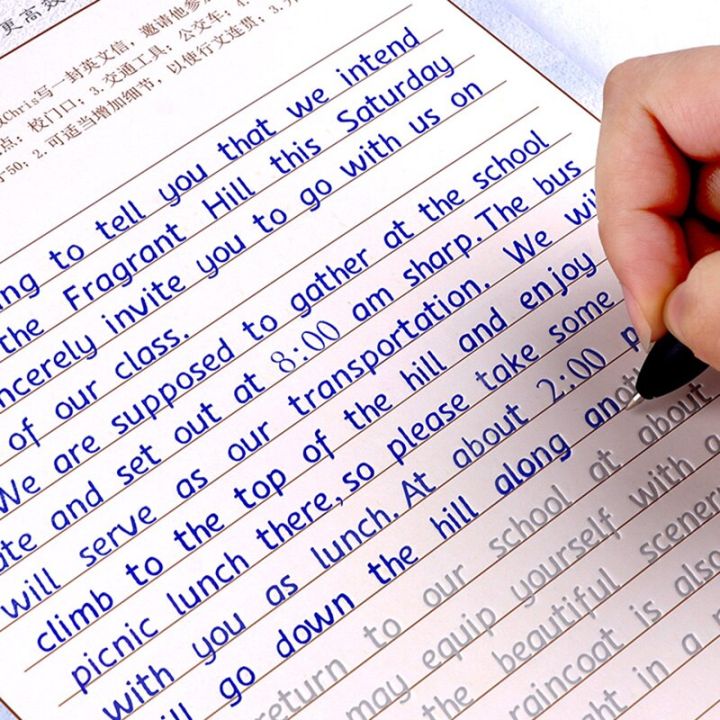 更高效
Chris写一封英文信，邀请他参加
点：校门口；3.交通工具：公交车；4.
50；2.可适当增加细节，以使行文连贯；3.
to tell you that we intend
the Fragrant Hill this Saturday
sincerely invite you to go with us on
of our class.
We are supposed to gather at the school
and set out at 8:00 am sharp. The bus
will serve as our transportation. We will
climb to the top of the hill and enjoy
picnic lunch there, so please take some
with you as lunch. At about 2:00 p
go down the hill along another
return to our school at about
may equip yourself with a
the beautiful scenery
raincoat is also
in a